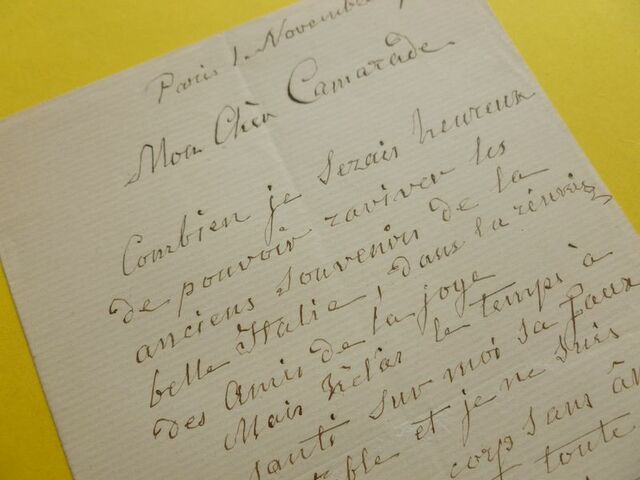 Paris 1. Novembre
Mon Chèr Camarade
Combien je serais heureux
de pouvoir raviver les
anciens souvenirs de la
belle Italie, dans la réunion
des Amis de la joye
Mais hèlas le temps à
santi sur moi sa faux
et je ne suis
corp sans âm
toute